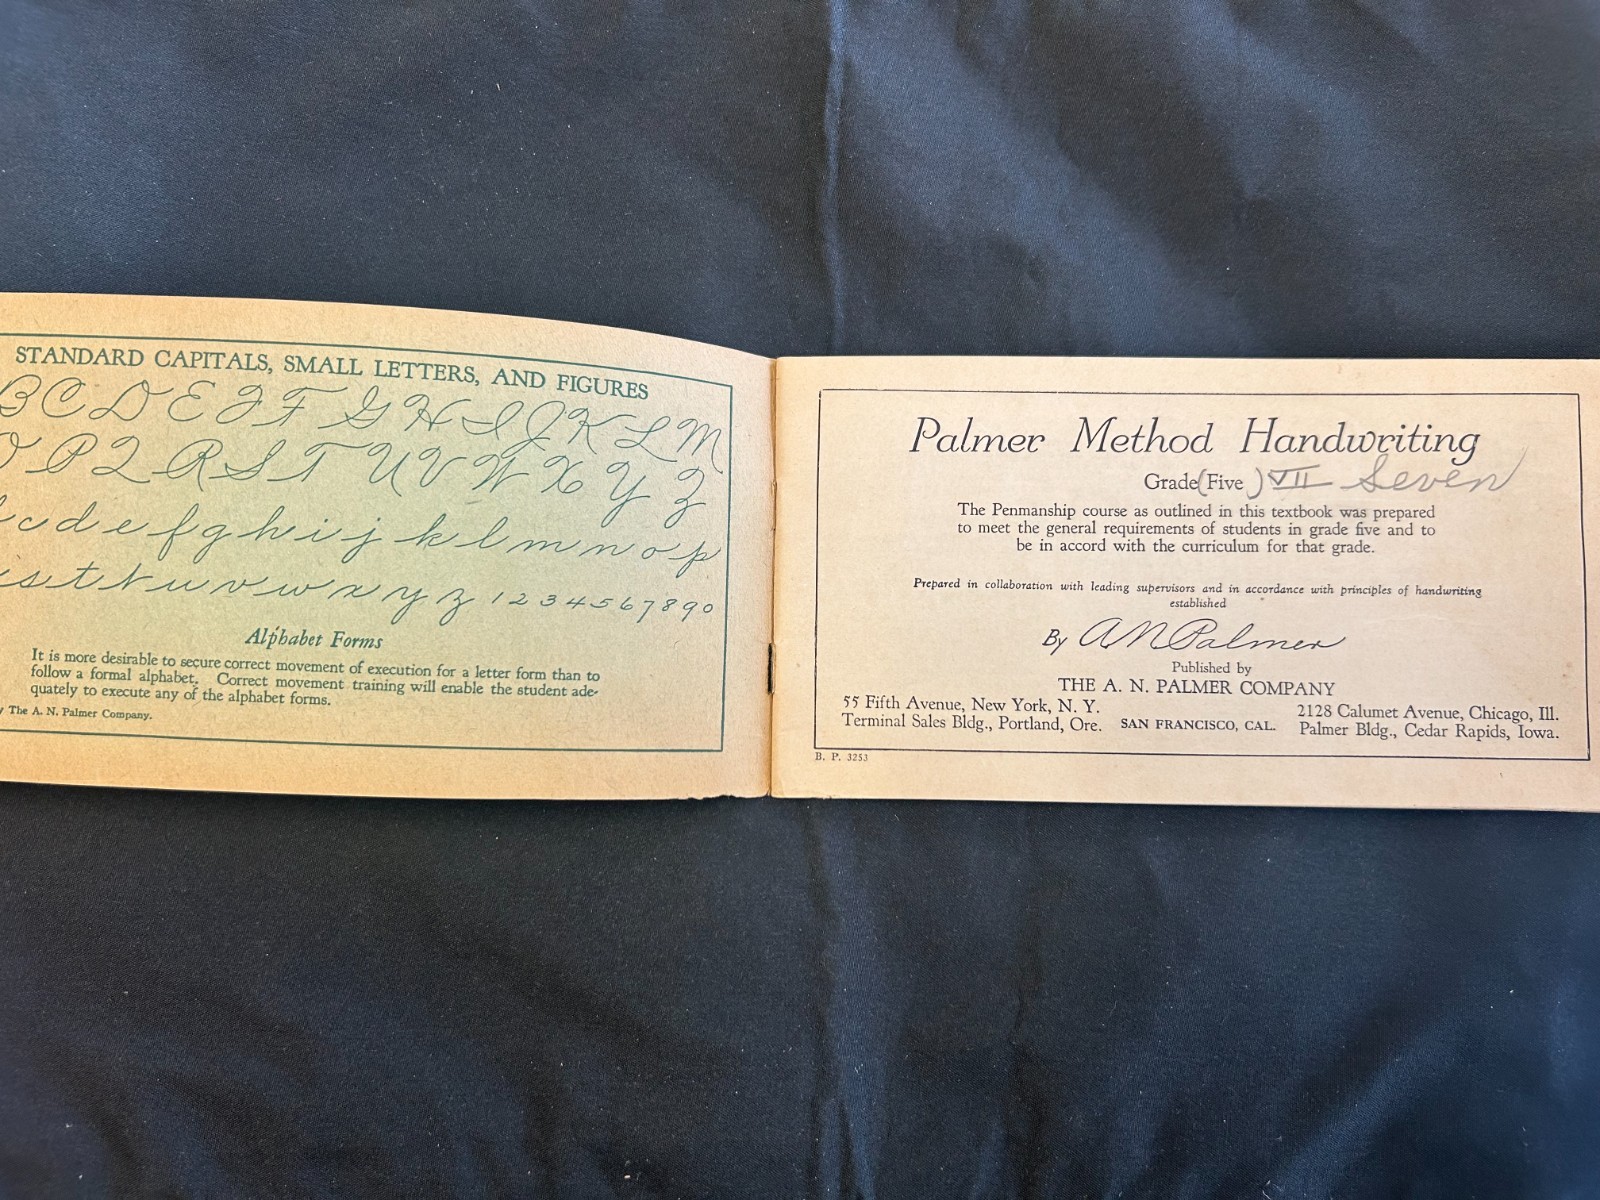 STANDARD CAPITALS, SMALL LETTERS, AND FIGURES
B C D E F F G H I J K L M
O P Q R S T U V W X Y Z
c d e f g h i j k l m n o p
s t t r u v w x y z 1 2 3 4 5 6 7 8 9 0
Alphabet Forms
It is more desirable to secure correct movement of execution for a letter form than to
follow a formal alphabet. Correct movement training will enable the student ade-
quately to execute any of the alphabet forms.
The A. N. Palmer Company.
Palmer Method Handwriting
Grade (Five) VII Seven
The Penmanship course as outlined in this textbook was prepared
to meet the general requirements of students in grade five and to
be in accord with the curriculum for that grade.
Prepared in collaboration with leading supervisors and in accordance with principles of handwriting
established
By A N Palmer
Published by
THE A. N. PALMER COMPANY
55 Fifth Avenue, New York, N. Y.
2128 Calumet Avenue, Chicago, Ill.
Terminal Sales Bldg., Portland, Ore. SAN FRANCISCO, CAL. Palmer Bldg., Cedar Rapids, Iowa.
B. P. 3253